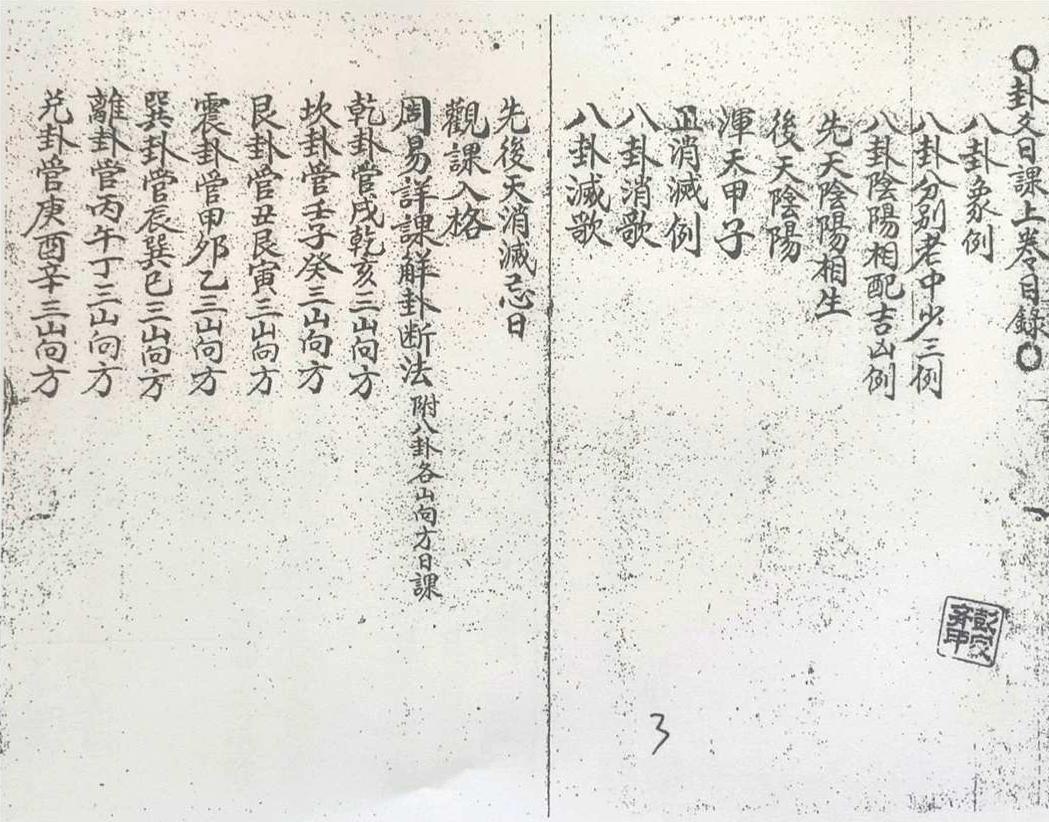 ○卦爻日課上卷目錄○
八卦象例
八卦分别老中少三例
八卦陰陽相配吉凶例
先天陰陽相生
後天陰陽
渾天甲子
正消滅例
八卦消歌
八卦滅歌
先後天消滅忌日
觀課入格
周易詳課解卦断法 附八卦各山向方日課
乾卦管戌乾亥三山向方
坎卦管壬子癸三山向方
艮卦管丑艮寅三山向方
震卦管甲夘乙三山向方
巽卦管辰巽巳三山向方
離卦管丙午丁三山向方
兌卦管庚酉辛三山向方
3